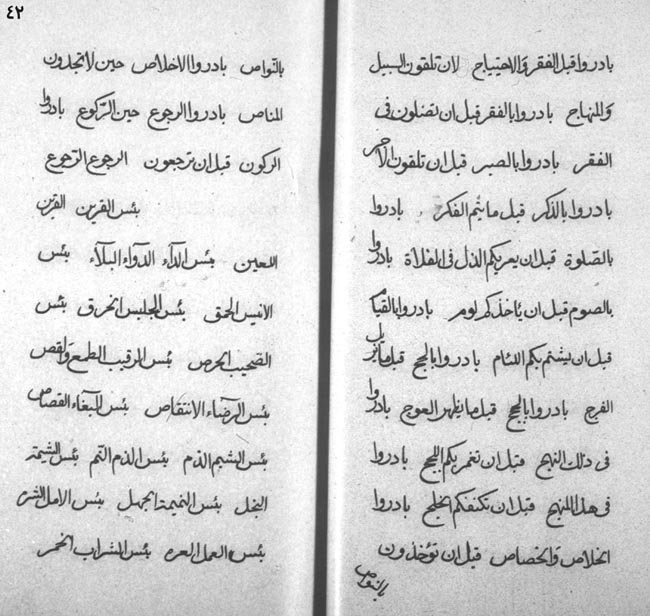 بادروا قبل الفقر والاحتياج لان تلقون السبيل
والمنهاج بادروا بالفقر قبل ان تضلون فى
الفقر بادروا بالصبر قبل ان تلقون الاجر
بادروا بالذكر قبل ما يتم الفكر بادروا
بالصلوة قبل ان يعريكم الذل فى الفلاة بادروا
بالصوم قبل ان ياخذكم لوم بادروا بالقيام
قبل ان يشتم بكم اللئام بادروا بالحج قبل ما
الفرج بادروا بالحج قبل ما يظهر العوج بادروا
فى ذلك النهج قبل ان تغمر بكم اللجج بادروا
فى هذا المنهج قبل ان تكنفكم الخلج بادروا
الخلاص والخصاص قبل ان تؤخذون
بالنواص
٤٢
بالنواص بادروا الاخلاص حين لا تجدون
المناص بادروا الرجوع حين الركوع بادروا
الركون قبل ان ترجعون الرجوع الرجوع
بئس القرين القرين
اللعين بئس الداء الدواء البلاء بئس
الانيس الحمق بئس الجليس الخرق بئس
الصحيب الحرص بئس الرقيب الطمع والقص
بئس الرضاء الانتقاص بئس البغاء القصاص
بئس الشيم الذم بئس الذم التم بئس الشيمة
البخل بئس النميمة الجهل بئس الامل الشر
بئس العمل العره بئس الشراب الخمر